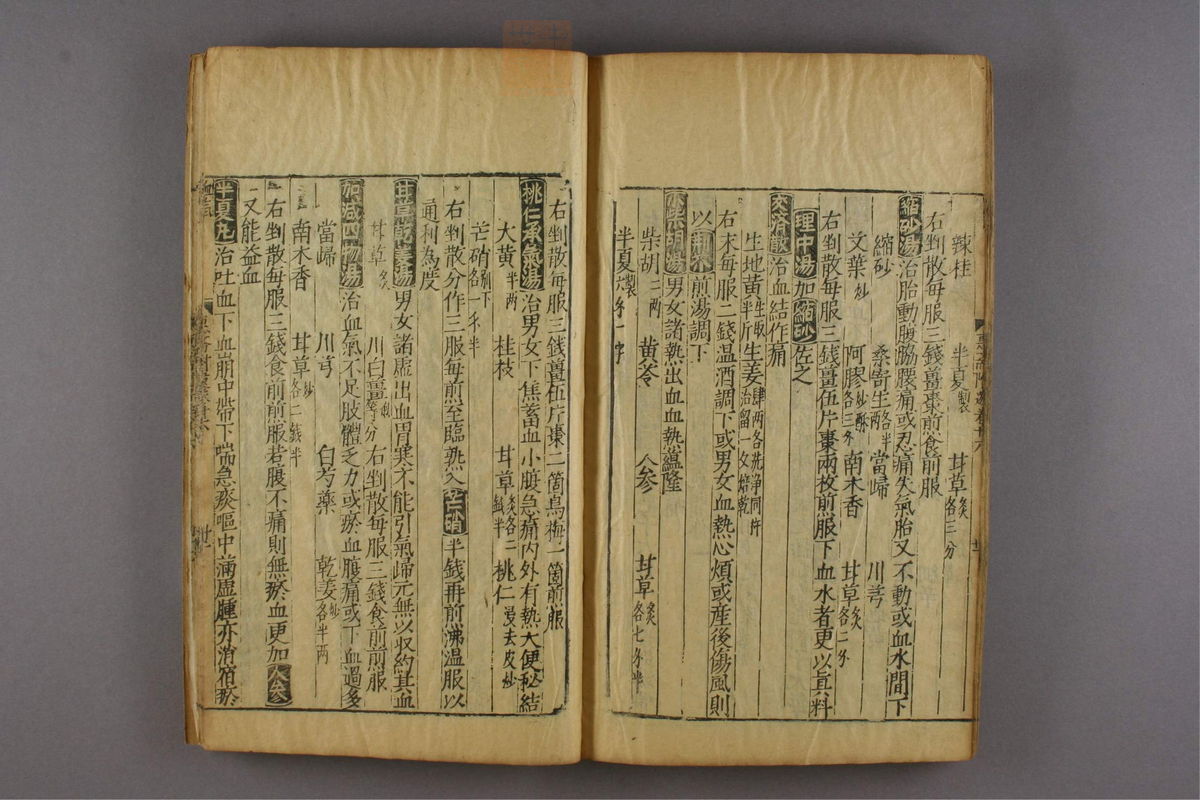 辣桂 半夏製 甘草炙各三分
右剉散每服三錢薑棗煎食前服
縮砂湯治胎動腹脇腰痛或忍痛失氣胎又不動或血水間下
縮砂 桑寄生各半兩 當歸 川芎
文葉炒 阿膠炒酥各三分 南木香 甘草炙各二分
右剉散每服三錢薑伍片棗兩枚煎服下血水者更以眞料
理中湯加縮砂佐之
交濟散治血結作痛
生地黃生取半斤 生姜肆兩各洗淨同杵治留一夕焙乾
右末每服二錢温酒調下或男女血熱心煩或産後傷風則
以荊芥煎湯調下
小柴胡湯男女諸熱出血血熱蘊隆
柴胡二兩 黃芩 人參 甘草炙各七分半
半夏製六分一字
右剉散每服三錢薑伍片棗二箇烏梅一箇煎服
桃仁承氣湯治男女下焦蓄血小腹急痛內外有熱大便秘結
大黃半兩 桂枝 甘草炙各二錢半 桃仁浸去皮炒
芒硝別下各一分半
右剉散分作三服每煎至臨熟入芒硝半錢再煎沸温服以
通利為度
甘草乾姜湯男女諸虛出血胃寒不能引氣歸元無以収約其血
甘草炙 川白薑製等分 右剉散每服三錢食前煎服
加減四物湯治血氣不足肢體乏力或瘀血腹痛或下血過多
當歸 川芎 白芍藥 乾姜炒各半兩
南木香 甘草炒各二錢半
右剉散每服三錢食前煎服若腹不痛則無瘀血更加人參
又能益血
半夏丸治吐血下血崩中帶下喘急痰嘔中滿虛腫亦消宿瘀